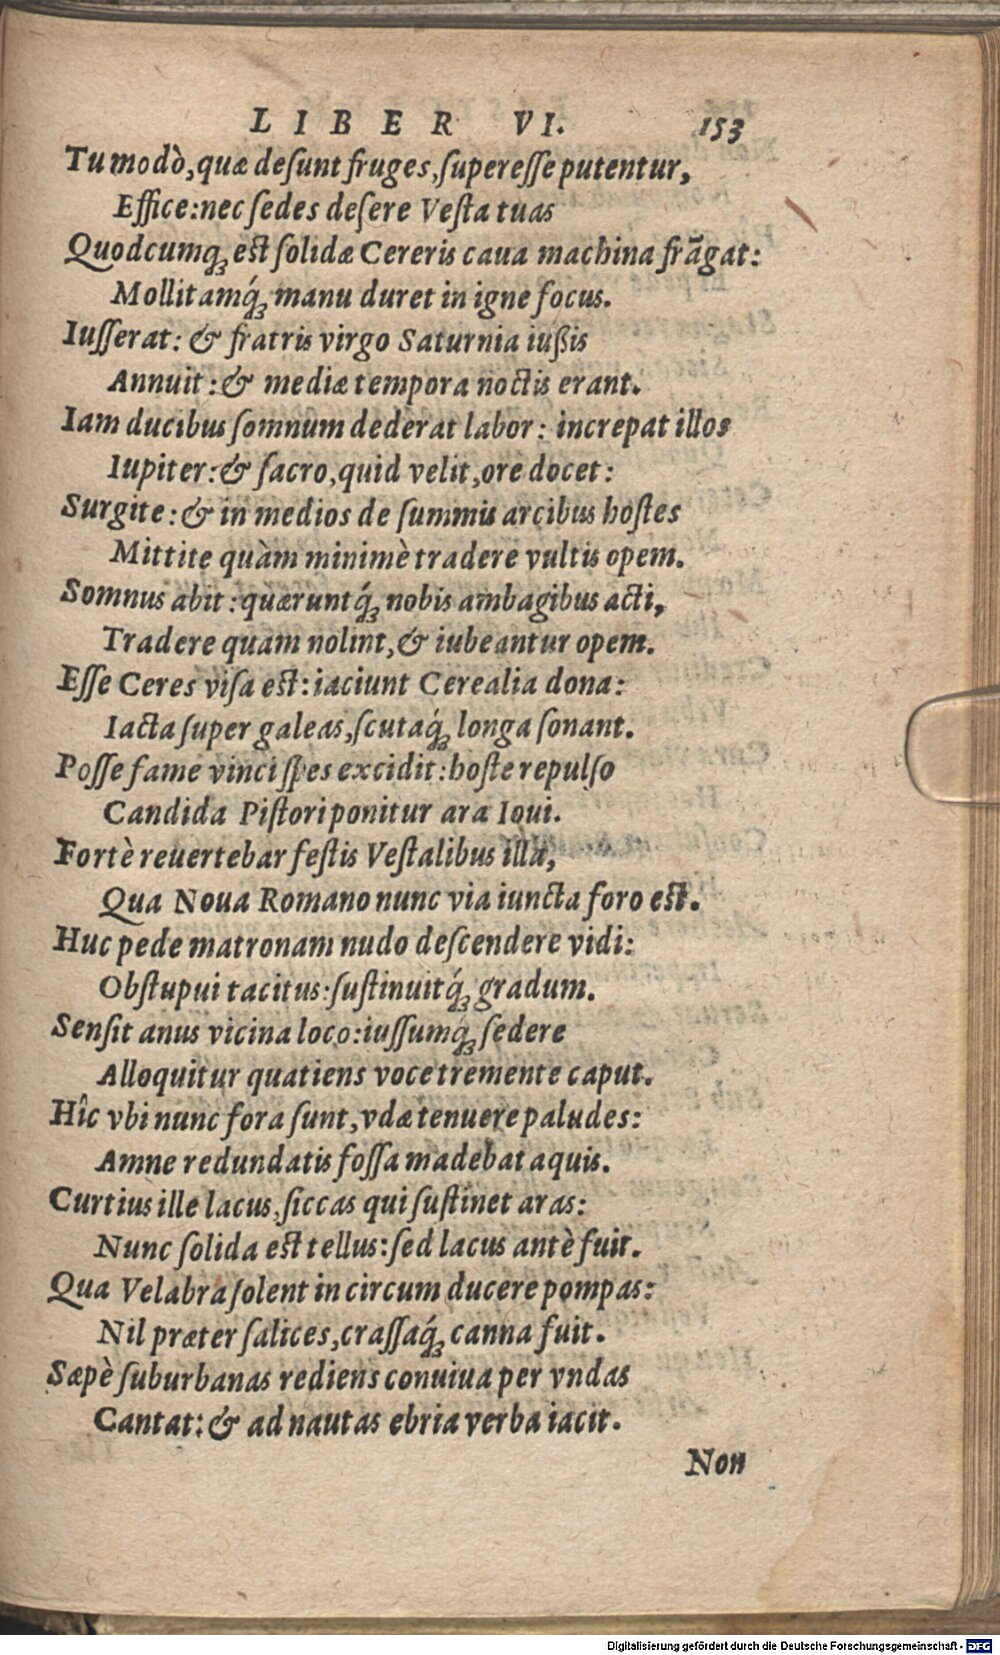 LIBER VI. 153
Tu modò, quæ deſunt fruges, ſupereſſe putentur,
Effice: nec ſedes deſere Veſta tuas
Quodcumq́ꝫ est ſolidæ Cereris caua machina frãgat:
Mollitamq́ꝫ manu duret in igne focus.
Iuſſerat: & fratris virgo Saturnia iußis
Annuit: & mediæ tempora noctis erant.
Iam ducibus ſomnum dederat labor: increpat illos
Iupiter: & ſacro, quid velit, ore docet:
Surgite: & in medios de ſummis arcibus hoſtes
Mittite quàm minimè tradere vultis opem.
Somnus abit: quæruntq́ꝫ nobis ambagibus acti,
Tradere quam nolint, & iubeantur opem.
Eſſe Ceres viſa est: iaciunt Cerealia dona:
Iacta ſuper galeas, ſcutaq́ꝫ longa ſonant.
Poſſe fame vinci ſpes excidit: hoſte repulſo
Candida Piſtori ponitur ara Ioui.
Fortè reuertebar feſtis Veſtalibus illa,
Qua Noua Romano nunc via iuncta foro est.
Huc pede matronam nudo deſcendere vidi:
Obſtupui tacitus: ſuſtinuitq́ꝫ gradum.
Senſit anus vicina loco: iuſſumq́ꝫ ſedere
Alloquitur quatiens voce tremente caput.
Hîc vbi nunc fora ſunt, vdæ tenuere paludes:
Amne redundatis foſſa madebat aquis.
Curtius ille lacus, ſiccas qui ſuſtinet aras:
Nunc ſolida est tellus: ſed lacus antè fuit.
Qua Velabra ſolent in circum ducere pompas:
Nil præter ſalices, craſſaq́ꝫ canna fuit.
Sæpè ſuburbanas rediens conuiua per vndas
Cantat: & ad nautas ebria verba iacit.
Non
Digitalisierung gefördert durch die Deutsche Forschungsgemeinschaft - DFG